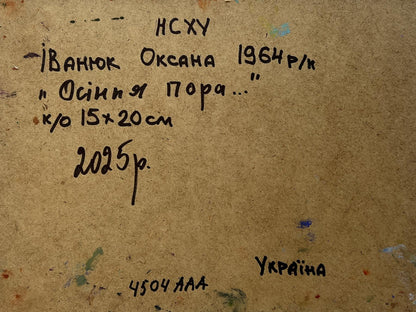 НСХУ
Іванюк Оксана 1964 р/н
„Осіння пора..."
к/о 15х20 см
2025р.
Україна
4504 ААА